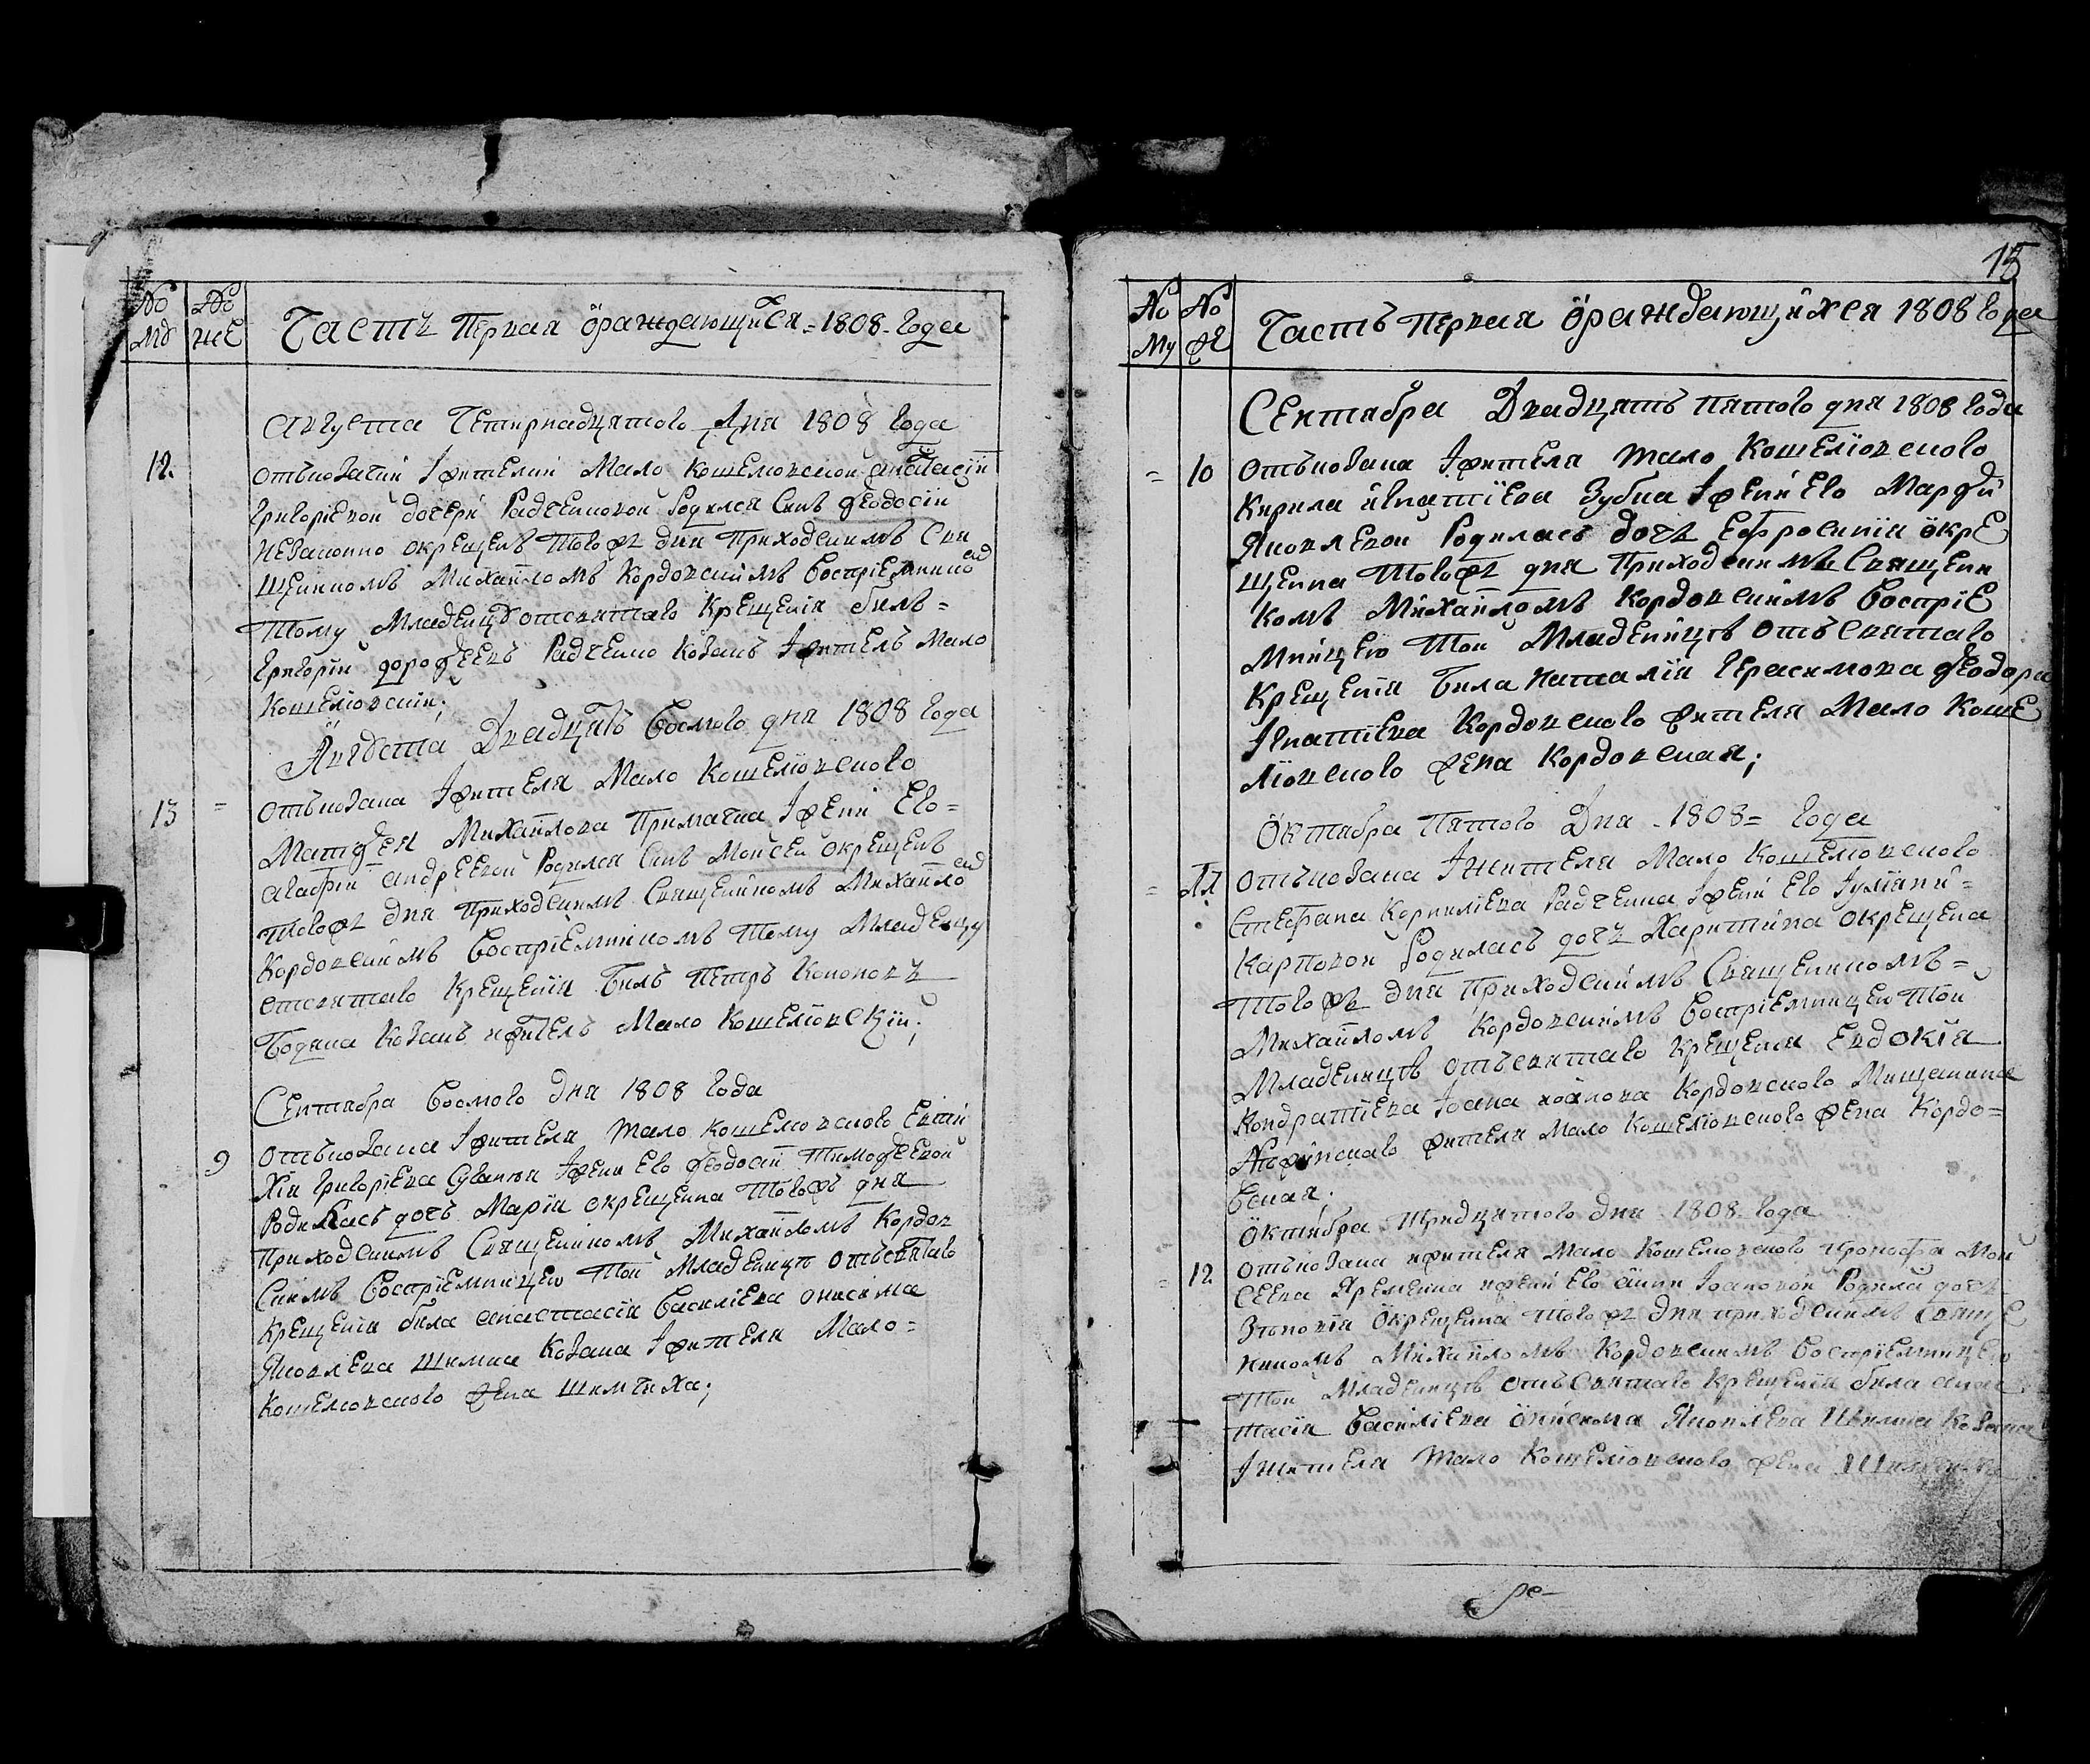 № муж
№ же
Часть Первая ораждающихся = 1808 - года
Августа Четирнадцятого Дня 1808 года
12. отъкозачки Іжителки Мало Кошелювской анастасіи
Григоріевой дочери Радченковой Родился Синъ феодосій
незаконно окрещенъ того ж дня Приходскимъ Свя
щенникомъ Михайломъ Кордовскимъ воспріемнико
Тому Младенцу отсвятаго Крещенія билъ =
Григорій дорофеевъ Радченко Козакъ Іжитель Мало
Кошелювскій;
Августа Двадцять восмого дня 1808 года
13 = отъкозака Іжителя Мало Кошелювского
Матфея Михайлова Примачка Іжени Его =
агафіи андреевой Родился Синъ Мойсей окрещенъ
того ж дня приходскимъ Священникомъ Михайло
Кордовскимъ воспріемникомъ тому Младенцу
отсвятаго Крещенія Билъ Петръ Кононовъ
Бодяка Козакъ ижитель Мало Кошелювскій;
Сентабра восмого дня 1808 года
9 отъкозака Іжителя Мало Кошелювского Евти
Хія Григоріева Іжени Его феодосіи Тимофеевой
Родилась дочь Марія окрещенна Тогож дня
приходскимъ Священникомъ Михайломъ Кордов
Скимъ воспріемницею Той Младеницъ отъсвятаго
Крещенія била анастасія василіева онисима
Яковлева Шимка Козака Іжителя Мало =
Кошелювского жена Шимчиха;
15
№ му
№ же
Часть Первая ораждающихся 1808 года
Сентабра Двадцять пятого дня 1808 года
= 10 отъкозака Іжителя Мало Кошеліовского
Кирила игнатіева Зубка Іжени Его Марфи
Яковлевой Родилась дочь Ефросинія окре
щенна Тогож дня Приходскимъ Священи
комъ Михайломъ Кордовскимъ воспріе
Мницею Той Младеницъ отъ Святаго
Крещенія Била Наталія Герасимова феодора
Ігнатіева Кордовского жителя Мало Коше
ліовского жена Кордовская;
Октабра Пятого Дня - 1808 = года
= 11 отъкозака Іжителя Мало Кошелювского
Стефана Корниліева Радченка Іжени Его Іуліани =
Карповой Родилась дочь Харитина окрещена
Того ж дня Приходскимъ Священникомъ =
Михайломъ Кордовскимъ воспріемницею Той
Младеницъ отъсвятаго Крещенія Евдокія
Кондратіева Іоана Кордовского Мищанина
Нѣжинскаго жителя Мало Кошеліовского жена Кордо =
вская.
Октабра Тридцятого дня 1808 - года
= 12 отъкозака ижителя Мало Кошелювского Мои
сеева Яременка ижени Его анни Іоановой Родила дочь
Зѣновія Окрещена того ж дня приходскимъ Свяще
нникомъ Михайломъ Кордовскимъ воспріемницею
Той Младеницъ отъ Святаго Крещенія била анас
тасія василіева онисима Яковлева Шимка Козака
Іжителя Мало Кошеліовского жена Шимчиха